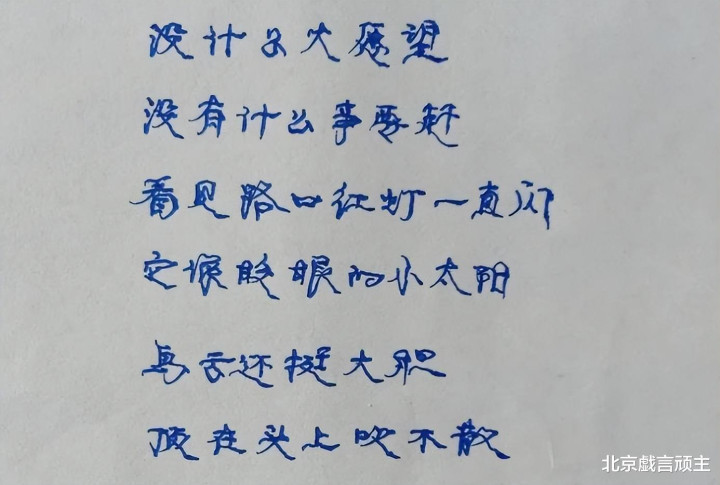 没什么大愿望
没有什么事要赶
看见路口红灯一直闪
它像眨眼的小太阳
乌云还挺大胆
顶在头上吹不散
北京戯言顽主